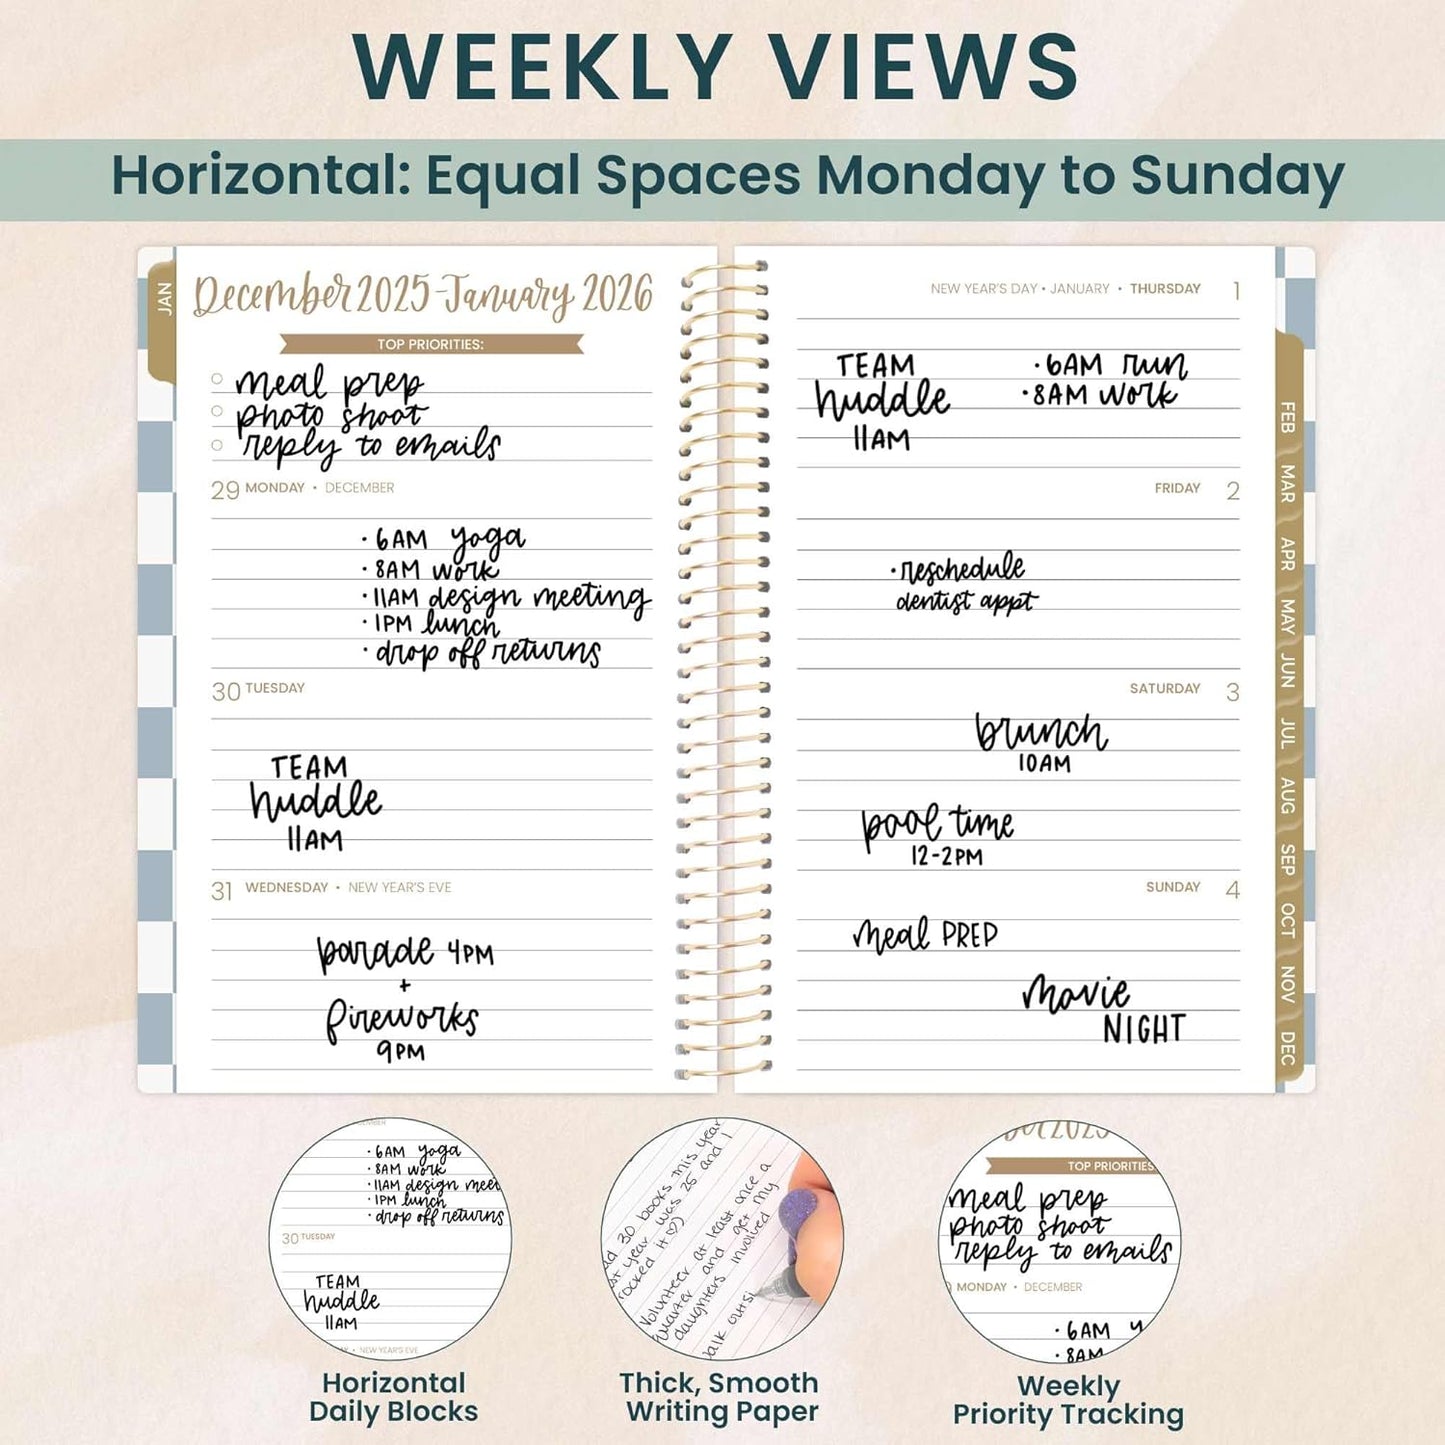 WEEKLY VIEWS
Horizontal: Equal Spaces Monday to Sunday
JAN
December 2025-January 2026
TOP PRIORITIES:
meal prep
photo shoot
reply to emails
29 MONDAY • DECEMBER
• 6AM yoga
• 8AM work
• 11AM design meeting
• 1PM lunch
• drop off returns
30 TUESDAY
TEAM
huddle
11AM
31 WEDNESDAY • NEW YEAR'S EVE
parade 4PM
+
fireworks
9PM
NEW YEAR'S DAY • JANUARY • THURSDAY 1
TEAM
huddle
11AM
• 6AM run
• 8AM work
FRIDAY 2
• reschedule
dentist appt
SATURDAY 3
brunch
10AM
pool time
12-2PM
SUNDAY 4
meal PREP
movie
NIGHT
FEB
MAR
APR
MAY
JUN
JUL
AUG
SEP
OCT
NOV
DEC
• 6AM yoga
• 8AM work
• 11AM design meet
• 1PM lunch
• drop off returns
30 TUESDAY
TEAM
huddle
11AM
NEW YEAR'S EVE
Horizontal
Daily Blocks
30 books this year
year was 25 and I
rocked it ♡))
Volunteer at least once a
quarter and get my
daughters involved
Thick, Smooth
Writing Paper
2025
TOP PRIORITIES
meal prep
photo shoot
reply to emails
MONDAY • DECEMBER
• 6AM y
• 8AM
Weekly
Priority Tracking